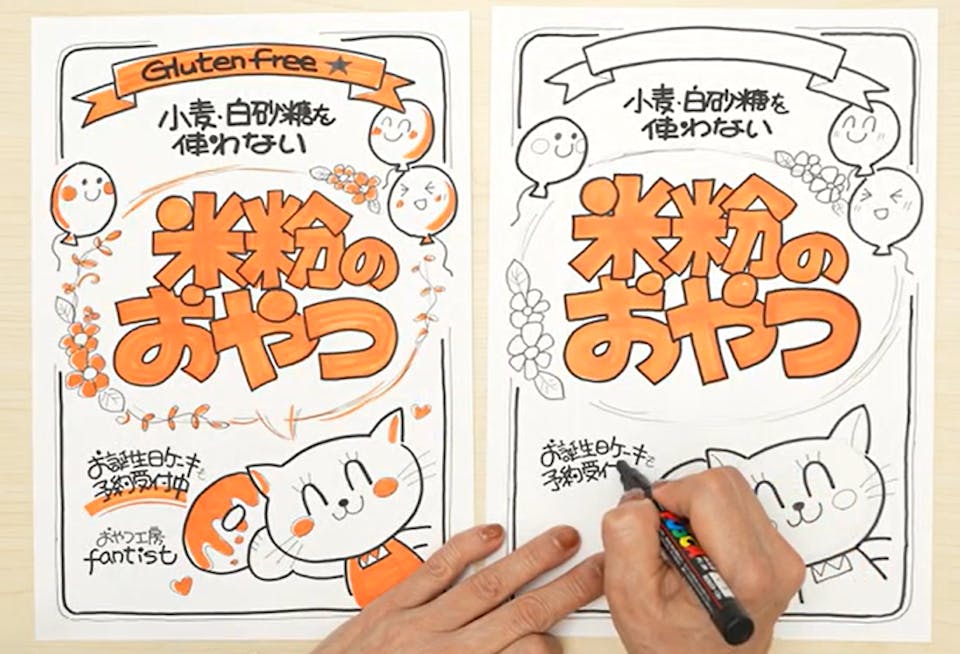 Gluten-free★
小麦・白砂糖を
使わない
米粉の
おやつ
お誕生日ケーキも
予約受付中
おやつ工房
fantist
小麦・白砂糖を
使わない
米粉の
おやつ
お誕生日ケーキも
予約受付